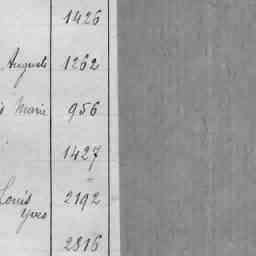 1426
Auguste 1262
Marie 956
1427
Louis 2192
Yves
2816